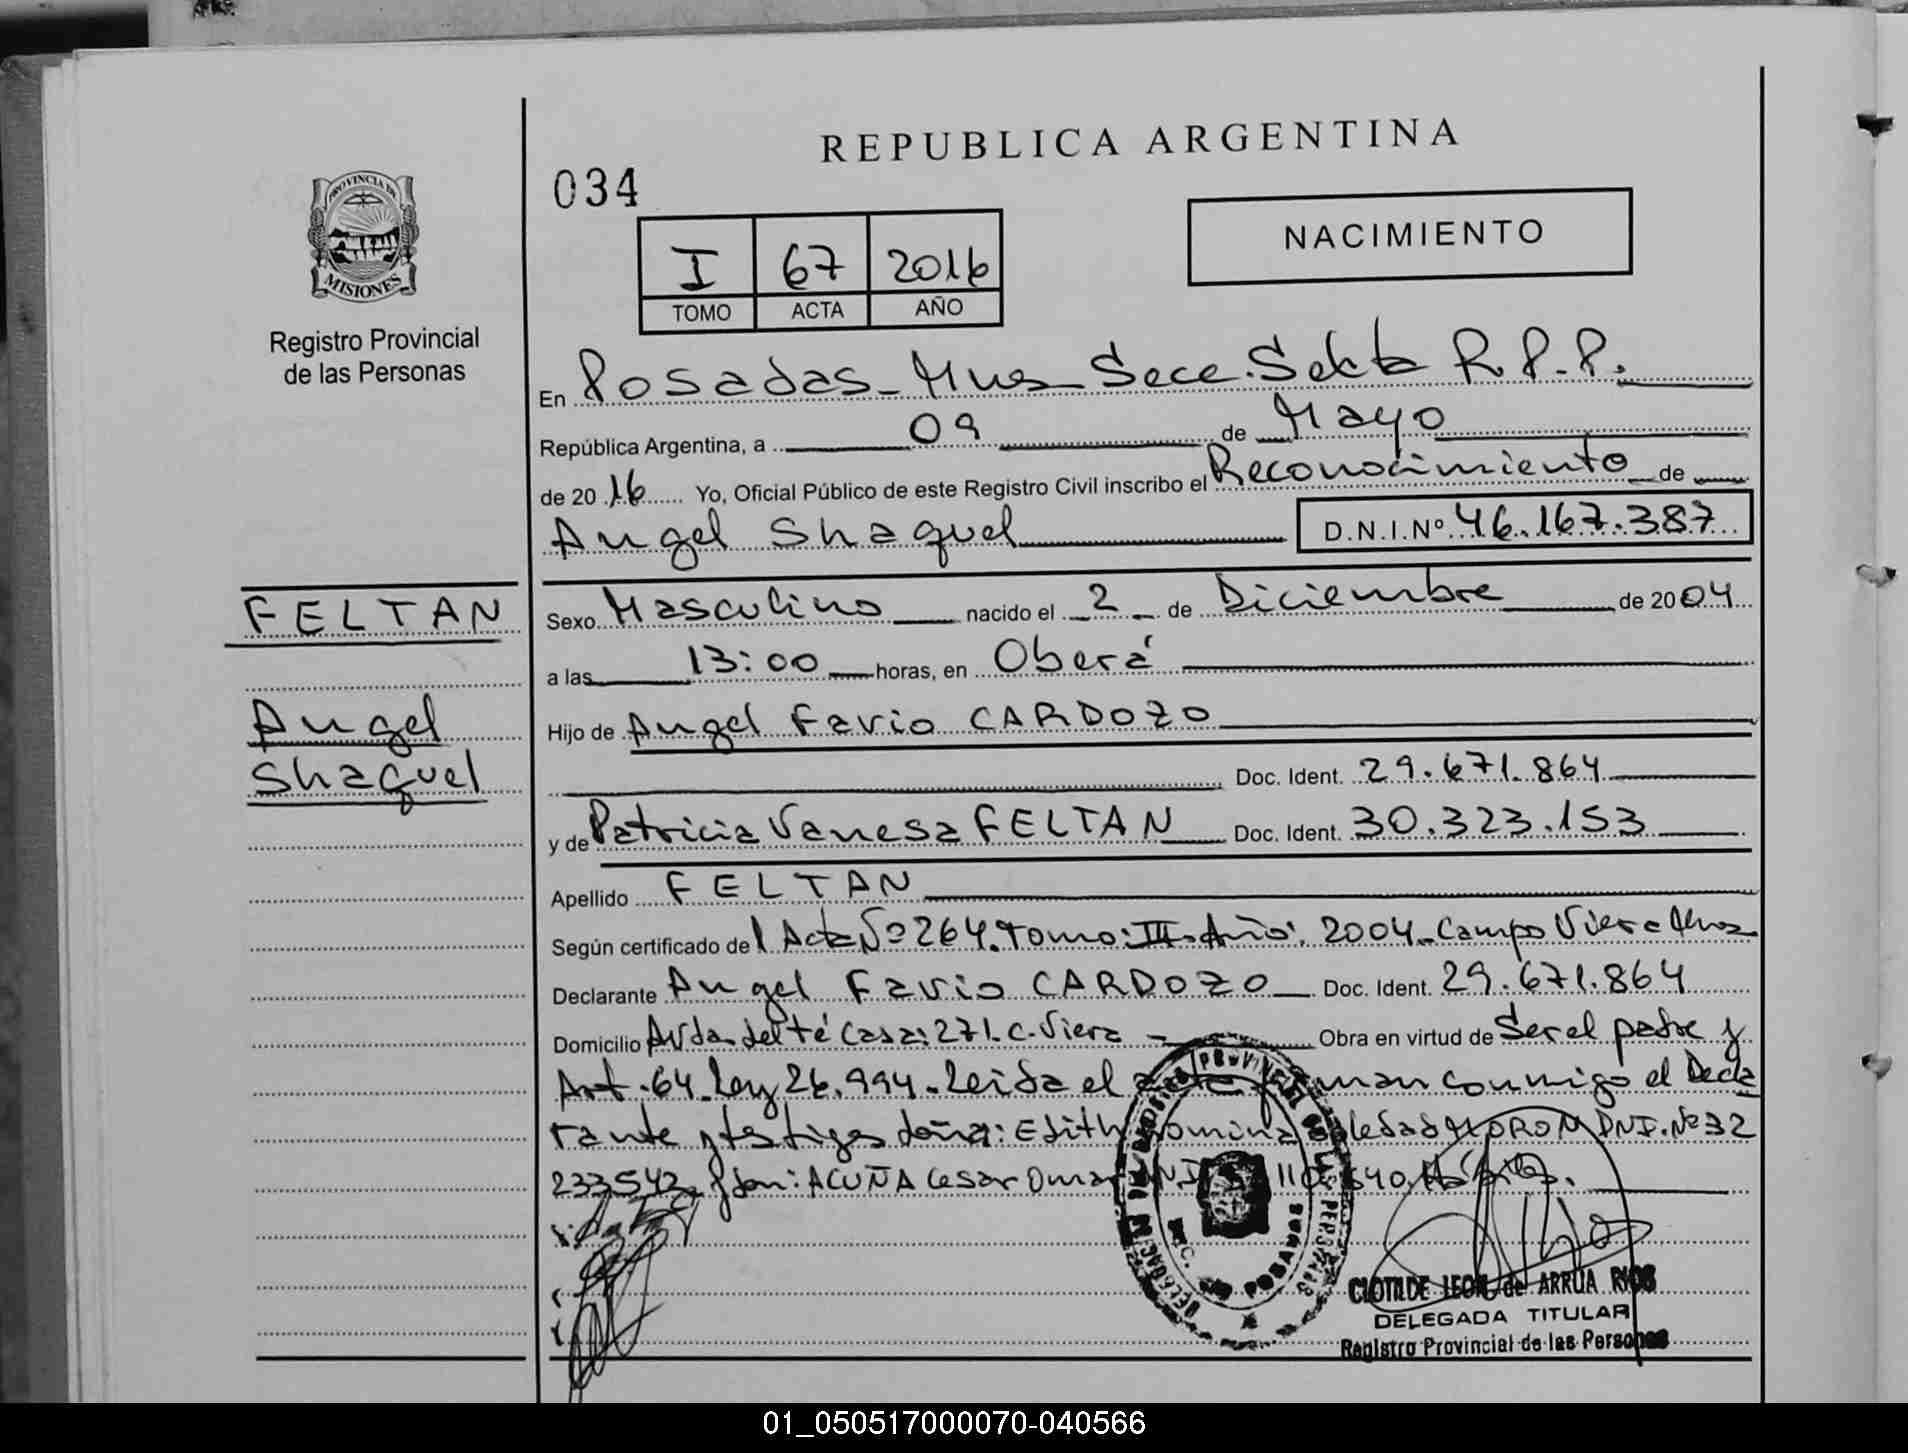 REPUBLICA ARGENTINA
034
NACIMIENTO
I 67 2016
TOMO ACTA AÑO
PROVINCIA DE
MISIONES
Registro Provincial
de las Personas
En Posadas - Mnes Secc. Sexta R.P.P.
República Argentina, a 09 de Mayo
de 2016 Yo, Oficial Público de este Registro Civil inscribo el Reconocimiento de
Angel Shaquel D.N.I.Nº 46.167.387
FELTAN
Angel
Shaquel
Sexo Masculino nacido el 2 de Diciembre de 2004
a las 13:00 horas, en Oberá
Hijo de Angel Favio CARDOZO
Doc. Ident. 29.671.864
y de Patricia Vanesa FELTAN Doc. Ident. 30.323.153
Apellido FELTAN
Según certificado del Acta Nº 264. Tomo: III. Año: 2004. Campo Viera Mnes
Declarante Angel Favio CARDOZO Doc. Ident. 29.671.864
Domicilio Avda. del té Casa: 271. C. Viera Obra en virtud de Ser el padre y
Art. 64 Ley 26.994. Leida el acta firman conmigo el Decla
rante y testigos doña: Edith Romina Soledad MORON DNI. Nº 32
233542 y don: ACUÑA Cesar Omar
DELEGACION
PROVINCIAL DE LAS PERSONAS
POSADAS
CLOTILDE LEON de ARRUA RIOS
DELEGADA TITULAR
Registro Provincial de las Personas
01_050517000070-040566